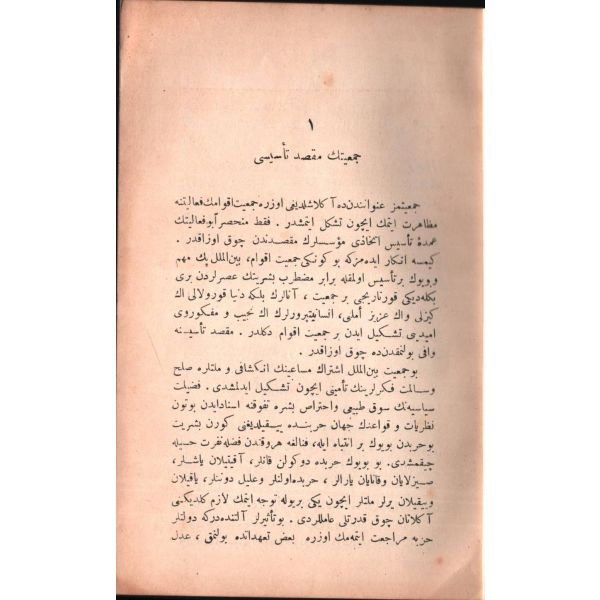 ١
جمعیتك مقصد تأسیسی
جمعیتمز عنوانندن ده آكلاشلدیغی اوزره جمعیت اقوامك فعالیتنه
مظاهرت ایتمك ایچون تشكل ایتمشدر . فقط منحصراً بو فعالیتك
عمدهٔ تأسیس اتخاذی مؤسسلرك مقصدندن چوق اوزاقدر .
كیمسه انكار ایده مزكه بو كونكی جمعیت اقوام ، بین الملل پك مهم
و بویوك بر تأسیس اولمقله برابر مضطرب بشریتك عصرلردن بری
بكله دیكی قورتاریجی بر جمعیت ، آنالرك بلكه دنیا قورولالی اك
كیزلی واك عزیز أملی ، انسانیتپرورلرك اك نجیب و مفكوروی
امیدینی تشكیل ایدن بر جمعیت اقوام دكلدر . مقصد تأسیسنه
وافی بولنمقدن ده چوق اوزاقدر .
بو جمعیت بین الملل اشتراك مساعینك انكشافی و ملتلره صلح
و سالمت فكرلرینك تأمینی ایچون تشكیل ایدلمشدی . فضیلت
سیاسیه تك سوق طبیعی و احتراص بشره تفوقنه استناد ایدن بوتون
نظریات و قواعدك جهان حربنده ییقیلدیغنی كورن بشریت
بو حربدن بویوك بر انتباه ایله ، فنالغه هر وقتدن فضله نفرت حسیله
چیقمشدی . بو بویوك حربده دوكولن قانلر ، آقیتیلان یاشلر ،
صیزلایان و قانایان یارالر ، حربده اولنلر و علیل دوننلر ، یاقیلان
و ییقیلان یرلر ملتلر ایچون یكی بر یوله توجه ایتمك لازم كلدیكنی
آكلاتان چوق قدرتلی عاملاردی . بو تأثیرلر آلتنده دركه دولتلر
حربه مراجعت ایتمه مك اوزره بعض تعهداتده بولنمق ، عدل